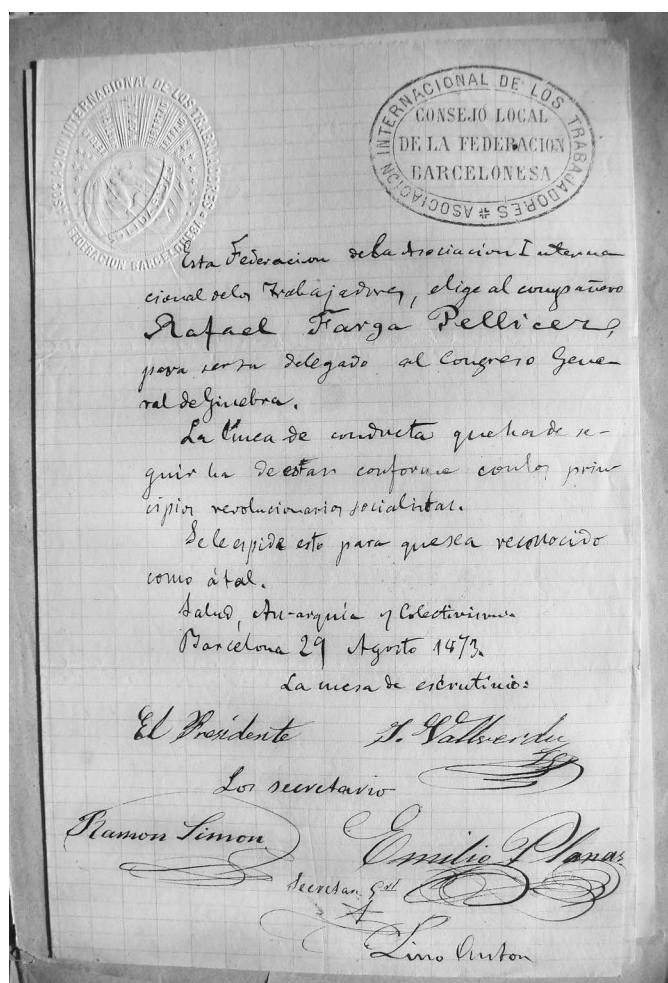 ASOCIACION INTERNACIONAL DE LOS TRABAJADORES
FEDERACION BARCELONESA
ASOCIACION INTERNACIONAL DE LOS TRABAJADORES
CONSEJO LOCAL
DE LA FEDERACION
BARCELONESA
Esta Federacion de la Asociacion Interna
cional de los Trabajadores, elige al compañero
Rafael Farga Pellicer,
para ser su delegado al Congreso Gene-
ral de Ginebra.
La linea de conducta que ha de se-
guir ha de estar conforme con los prin-
cipios revolucionarios socialistas.
Se le espide esto para que sea reconocido
como á tal.
Salud, An-arquía y Colectivismo.
Barcelona 29 Agosto 1873.
La mesa de escrutinio:
El Presidente J. Vallverdu
Los secretario
Ramon Simon Emilio Planas
Secretar. Gral
Lino Anton